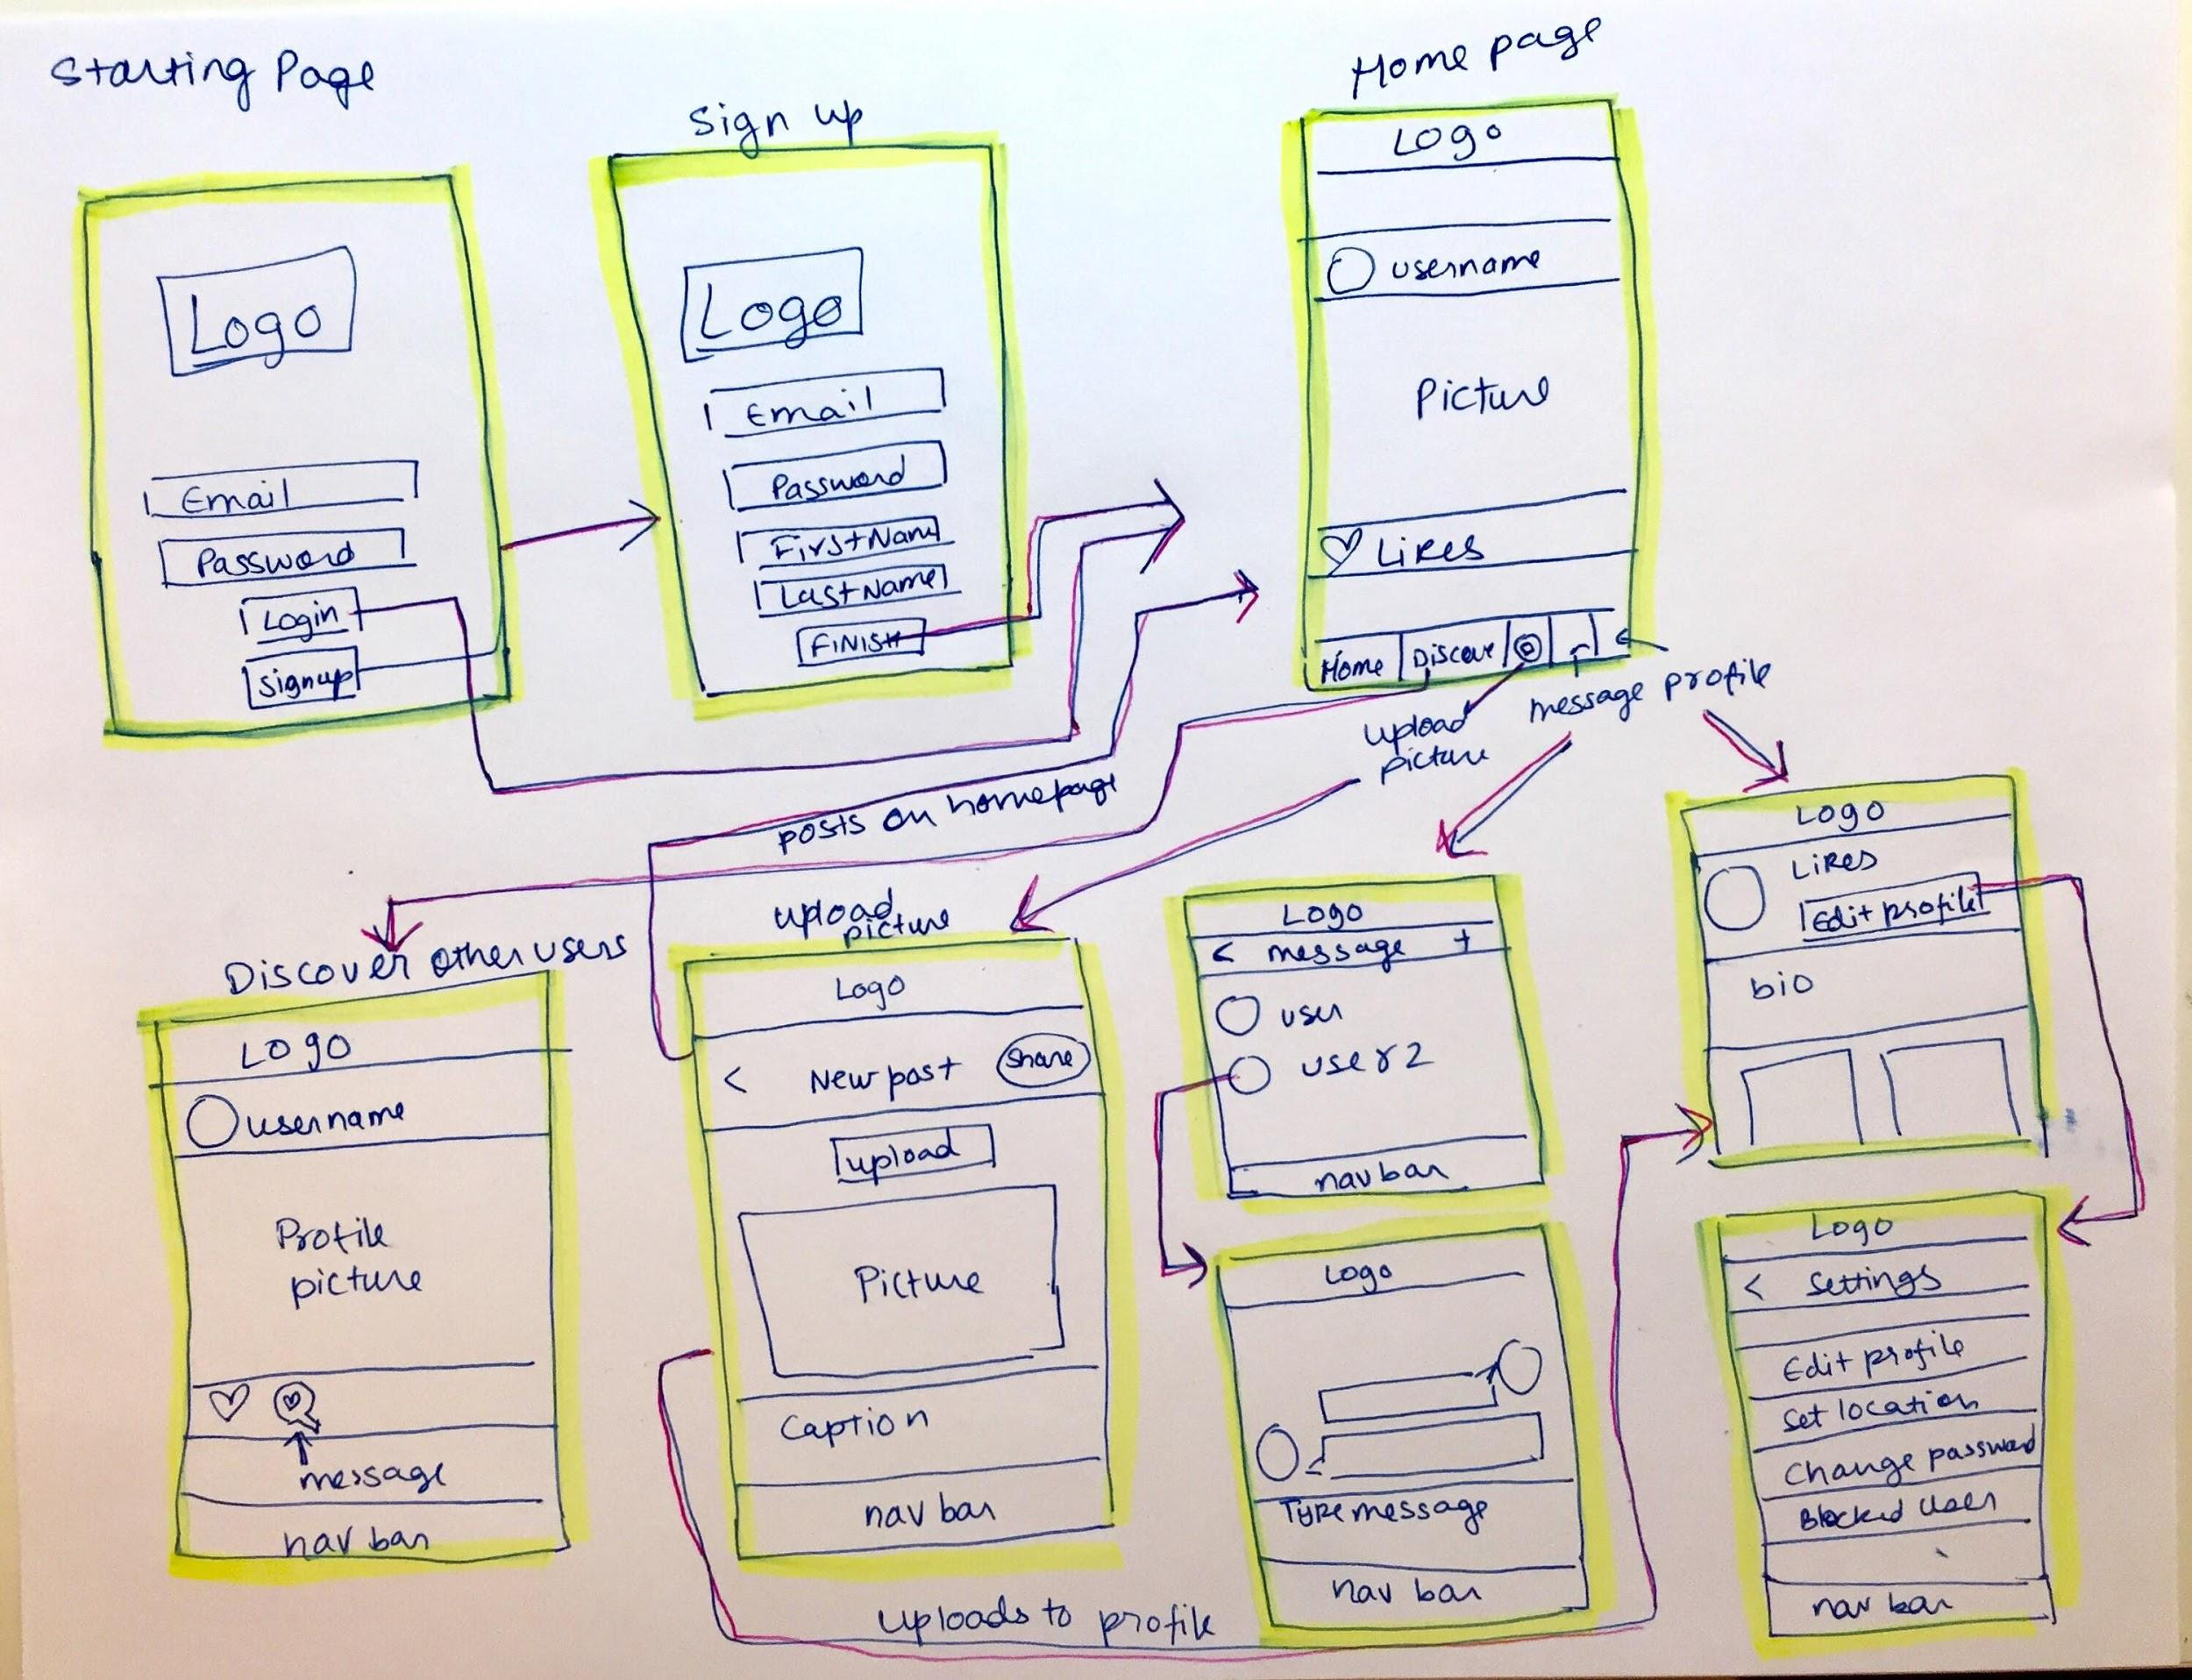 Starting Page
Logo
Email
Password
Login
Signup
Sign up
Logo
Email
Password
First Name
Last Name
FINISH
Home page
Logo
username
Picture
Likes
Home Discover
upload
picture
message profile
posts on homepage
Discover other users
Logo
username
Profile
picture
message
nav bar
upload
picture
Logo
< New post Share
upload
Picture
Caption
nav bar
Logo
< message +
user
user 2
nav bar
Logo
Type message
nav bar
Logo
Likes
Edit profile
bio
Logo
< Settings
Edit profile
Set location
Change password
Blocked user
nav bar
uploads to profile